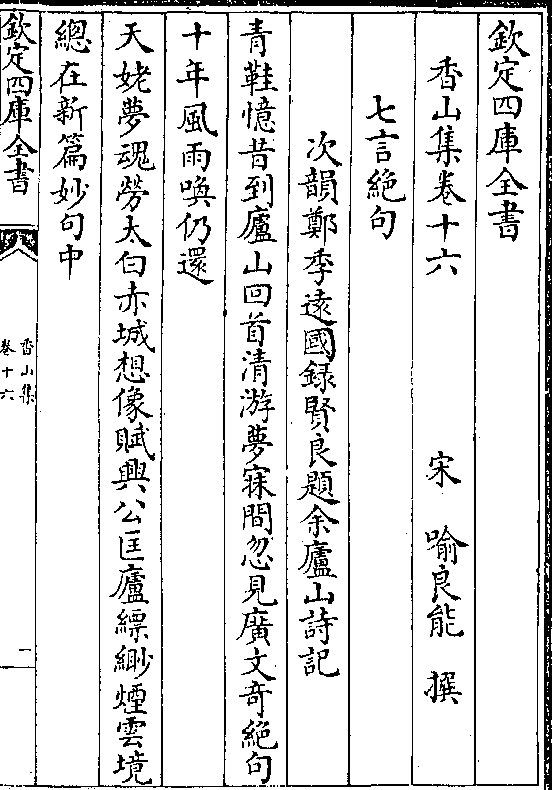 欽定四庫全書
香山集卷十六
宋 喻良能 撰
七言絶句
次韻鄭季遠國録賢良題余廬山詩記
青鞋憶昔到廬山回首清游夢寐間忽見廣文奇絶句
十年風雨喚仍還
天姥夢魂勞太白赤城想像賦興公匡廬縹緲煙雲境
總在新篇妙句中
欽定四庫全書
香山集
卷十六
一